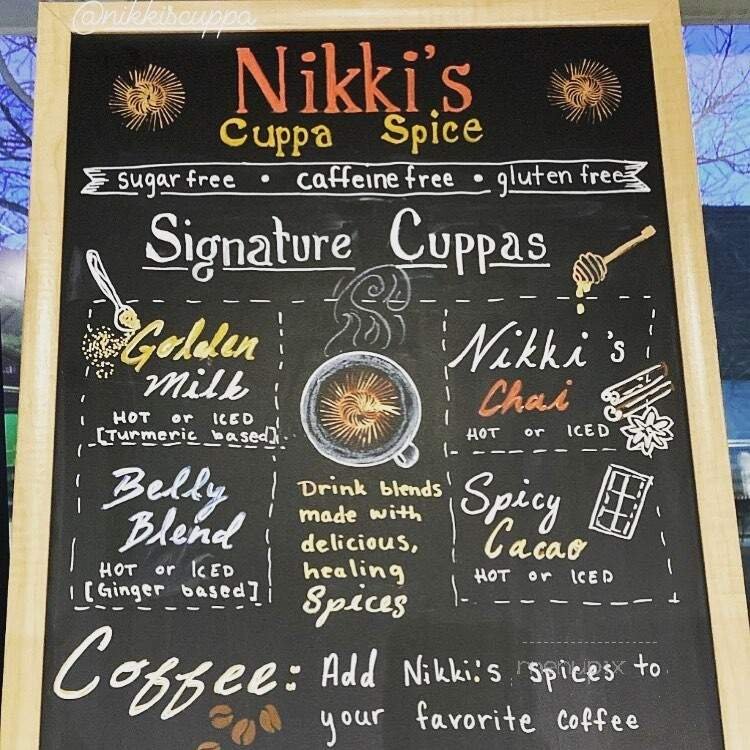 @nikkiscuppa
Nikki's
Cuppa Spice
sugar free • caffeine free • gluten free
Signature Cuppas
Golden
Milk
HOT or ICED
[Turmeric based]
Nikki's
Chai
HOT or ICED
Belly
Blend
HOT or ICED
[Ginger based]
Drink blends
made with
delicious,
healing
Spices
Spicy
Cacao
HOT or ICED
Coffee: Add Nikki's spices to
your favorite coffee
menupix